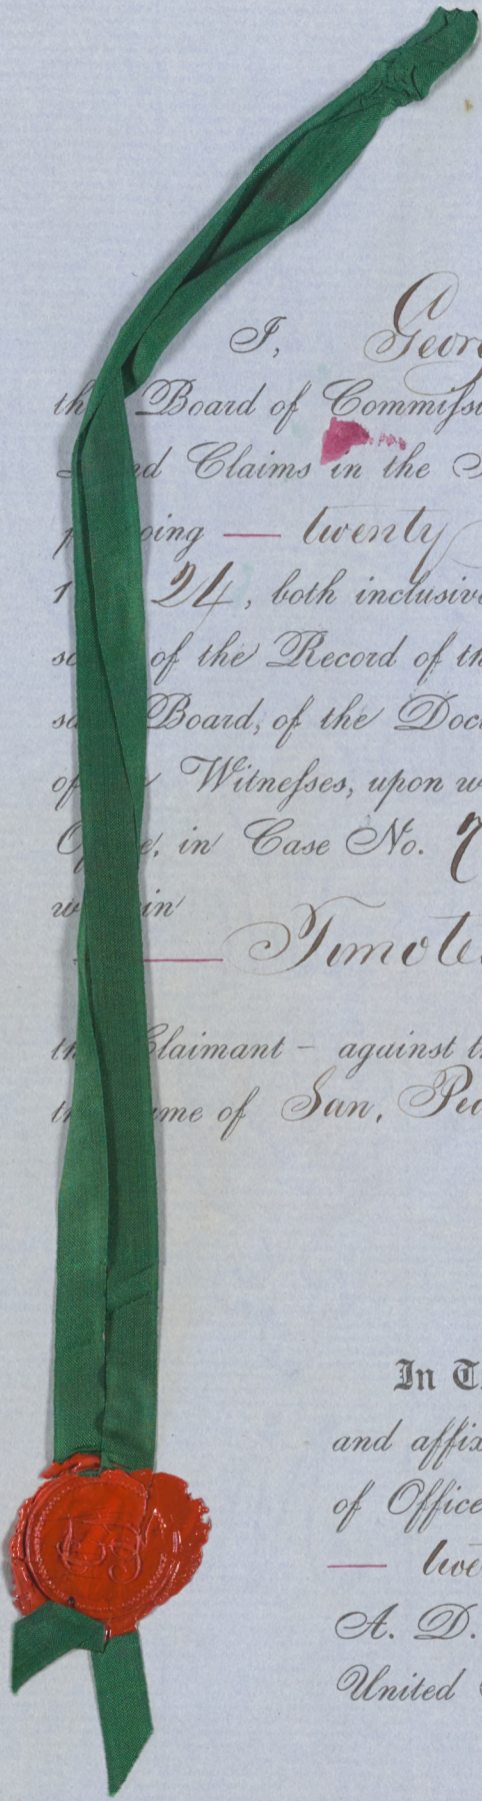 I, Geor
th Board of Commissi
nd Claims in the S
oing — twenty
1 24, both inclusive
sa of the Record of th
sa Board, of the Doc
of Witnesses, upon w
O e, in Case No. 7
w in
— Timote
th Claimant – against th
th me of San, Pe
In T
and affix
of Office
— twe
A. D.
United